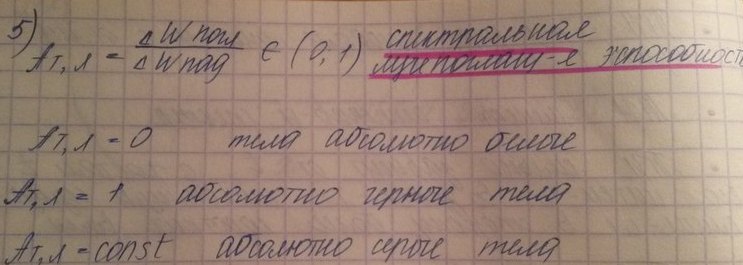 5) Aт,λ = ΔWпогл / ΔWпад ∈ (0,1) спектральная
лучепоглащ-я способность
Aт,λ = 0 тела абсолютно белые
Aт,λ = 1 абсолютно черные тела
Aт,λ = const абсолютно серые тела